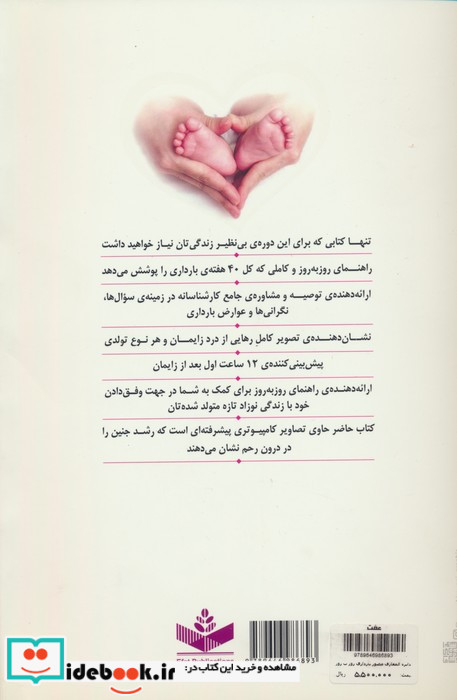 تنها کتابی که برای این دوره‌ی بی‌نظیر زندگی‌تان نیاز خواهید داشت
راهنمای روزبه‌روز و کاملی که کل ۴۰ هفته‌ی بارداری را پوشش می‌دهد
ارائه‌دهنده‌ی توصیه و مشاوره‌ی جامع کارشناسانه در زمینه‌ی سؤال‌ها،
نگرانی‌ها و عوارض بارداری
نشان‌دهنده‌ی تصویر کامل رهایی از درد زایمان و هر نوع تولدی
پیش‌بینی‌کننده‌ی ۱۲ ساعت اول بعد از زایمان
ارائه‌دهنده‌ی راهنمای روزبه‌روز برای کمک به شما در جهت وفق‌دادن
خود با زندگی نوزاد تازه متولد شده‌تان
کتاب حاضر حاوی تصاویر کامپیوتری پیشرفته‌ای است که رشد جنین را
در درون رحم نشان می‌دهند
عفت
9789646986893
۵,۵۰۰,۰۰۰
ریال
مشاهده و خرید این کتاب در:
idebook.ir